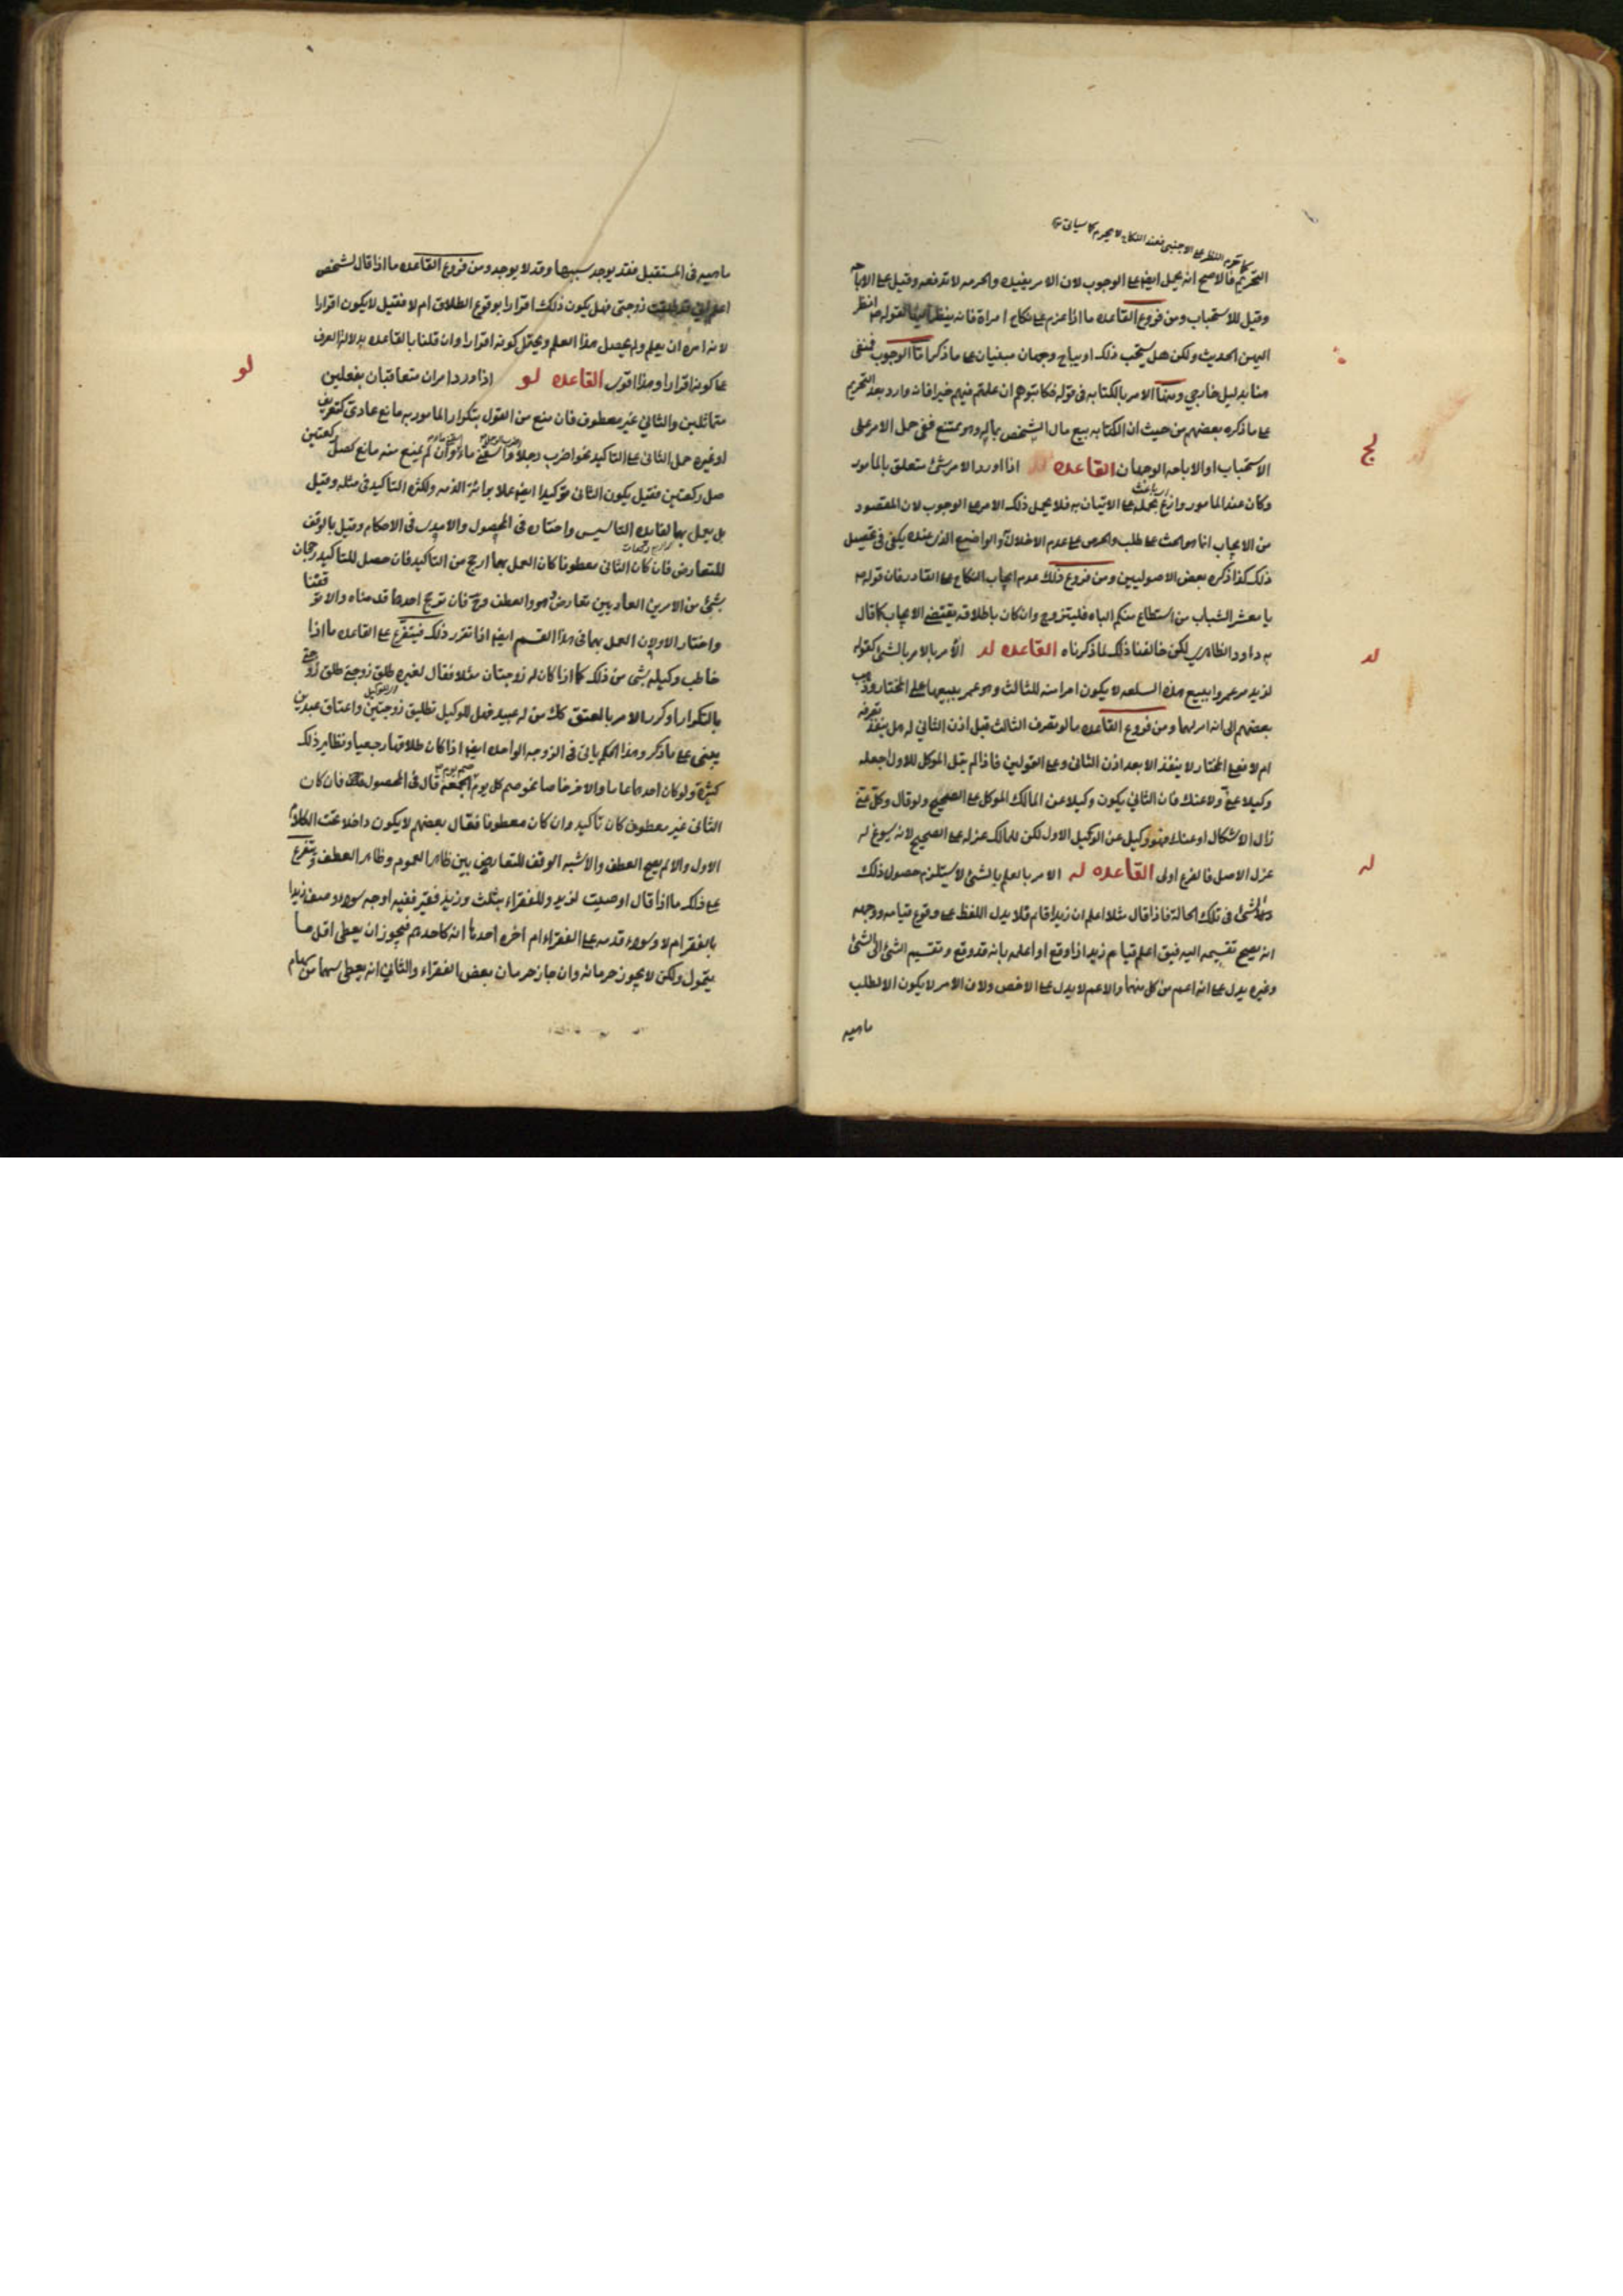 كما تقدم النظر على الاجنبى فعند النكاح لا يحرم كما سياتى
التحريم فالاصح انه يحمل ايضا على الوجوب لان الامر يفيده والحرمه لا تدفعه وقيل على الاباحه
وقيل للاستحباب ومن فروع القاعده ما اذا عزم على نكاح امراة فانه ينظر اليها لقوله انظر
اليهن الحديث ولكن هل يستحب ذلك او يباح وجهان مبنيان على ما ذكر اما الوجوب فمنفى
هنا بدليل خارجي ومنها الامر بالكتابه فى قوله فكاتبوهم ان علمتم فيهم خيرا فانه وارد بعد التحريم
على ما ذكره بعضهم من حيث ان الكتابه بيع مال الشخص بماله وهو ممتنع ففى حمل الامر على
الاستحباب او الاباحه الوجهان القاعده لج اذا اورد الامر بشئ متعلق بالمامور
لج
وكان عند المامور وازع يحمله على الاتيان به فلا يحمل ذلك الامر على الوجوب لان المقصود
من الايجاب انما هو الحث على طلب والحرص على عدم الاخلال به والوازع الذى عنده يكفى فى تحصيل
ذلك كذا ذكره بعض الاصوليين ومن فروع ذلك عدم ايجاب النكاح على القادر فان قوله
يا معشر الشباب من استطاع منكم الباه فليتزوج وان كان باطلاقه يقتضى الايجاب كما قال
به داود الظاهرى لكن خالفنا ذلك لما ذكرناه القاعده لد الامر بالامر بالشئ كقوله
لد
لزيد مر عمروا ببيع هذه السلعه لا يكون امرا منه للثالث وهو عمر ببيعها على المختار وذهب
بعضهم الى انه امر لهما ومن فروع القاعده ما لو تصرف الثالث قبل اذن الثاني له هل ينفذ تصرفه
ام لا فعلى المختار لا ينفذ الا بعد اذن الثانى وعلى القولين فاذا لم يقل الموكل للاول اجعله
وكيلا عنى ولا عنك فان الثانى يكون وكيلا عن المالك الموكل على الصحيح ولو قال وكل عنى
زال الاشكال او عنك فهو وكيل عن الوكيل الاول لكن للمالك عزله على الصحيح لانه يسوغ له
عزل الاصل فالفرع اولى القاعده له الامر بالعلم بالشئ لا يستلزم حصول ذلك
له
الشئ فى تلك الحالة فاذا قال مثلا اعلم ان زيدا قائم فلا يدل اللفظ على وقوع قيامه ووجهه
انه يصح تقسيمه اليه فيق اعلم قيام زيد اذا وقع او اعلمه بانه قد وقع وتقسيم الشئ الى الشئ
وغيره يدل على انه اعم من كل منهما والاعم لا يدل على الاخص ولان الامر لا يكون الا لطلب
ماهيه
ماهيه فى المستقبل فقد يوجد سببها وقد لا يوجد ومن فروع القاعده ما اذا قال لشخص
اعلم انى قد طلقت زوجتى فهل يكون ذلك اقرارا بوقوع الطلاق ام لا فقيل لا يكون اقرارا
لانه امره ان يعلم ولم يحصل هذا العلم ويحتمل كونه اقرارا وان قلنا بالقاعده بدلالة العرف
على كونه اقرارا وهذا اقوى القاعده لو اذا ورد امران متعاقبان بفعلين
لو
متماثلين والثانى غير معطوف فان منع من القول بتكرار المامور به مانع عادى كتعريف
او غيره حمل الثانى على التاكيد نحو اضرب رجلا واسقنى ماء وان لم يمنع منه مانع كصل ركعتين
صل ركعتين فقيل يكون الثانى مؤكدا ايضا عملا ببرائة الذمه ولكثره التاكيد فى مثله وقيل
بل يعمل بهما لفايده التاسيس واختاره فى المحصول والامدى فى الاحكام وقيل بالوقف
للتعارض فان كان الثانى معطوفا كان العمل بهما ارجح من التاكيد فان حصل للتاكيد رجحان
بشئ من الامرين العاديين تعارض هو والعطف وح فان ترجح احدهما قدمناه والا توقفنا
واختار الاولان العمل بهما فى هذا القسم ايضا اذا تقرر ذلك فيتفرع على القاعده ما اذا
خاطب وكيله بشئ من ذلك كما اذا كان له زوجتان مثلا فقال لغيره طلق زوجتى طلق زوجتى
بالتكرار او كرر الامر بالعتق كك من له عبيد فهل للوكيل تطليق زوجتين واعتاق عبدين
يبنى على ما ذكر وهذا الحكم ياتى فى الزوجه الواحده ايضا اذا كان طلاقها رجعيا ونظاير ذلك
كثيرة ولو كان احدهما عاما والاخر خاصا نحو صم كل يوم صم يوم الجمعه قال فى المحصول فان كان
الثانى غير معطوف كان تاكيدا وان كان معطوفا فقال بعضهم لا يكون داخلا تحت الكلام
الاول والا لم يصح العطف والاشبه الوقف للتعارض بين ظاهر العموم وظاهر العطف ويتفرع
على ذلك ما اذا قال اوصيت لزيد وللفقراء بثلث وزيد فقير ففيه اوجه سواء وصف زيدا
بالفقر ام لا وسواء قدمه على الفقراء ام اخره احدها انه كاحدهم فيجوز ان يعطى اقل ما
يتمول ولكن لا يجوز حرمانه وان جاز حرمان بعض الفقراء والثانى انه يعطى سهما من سهام